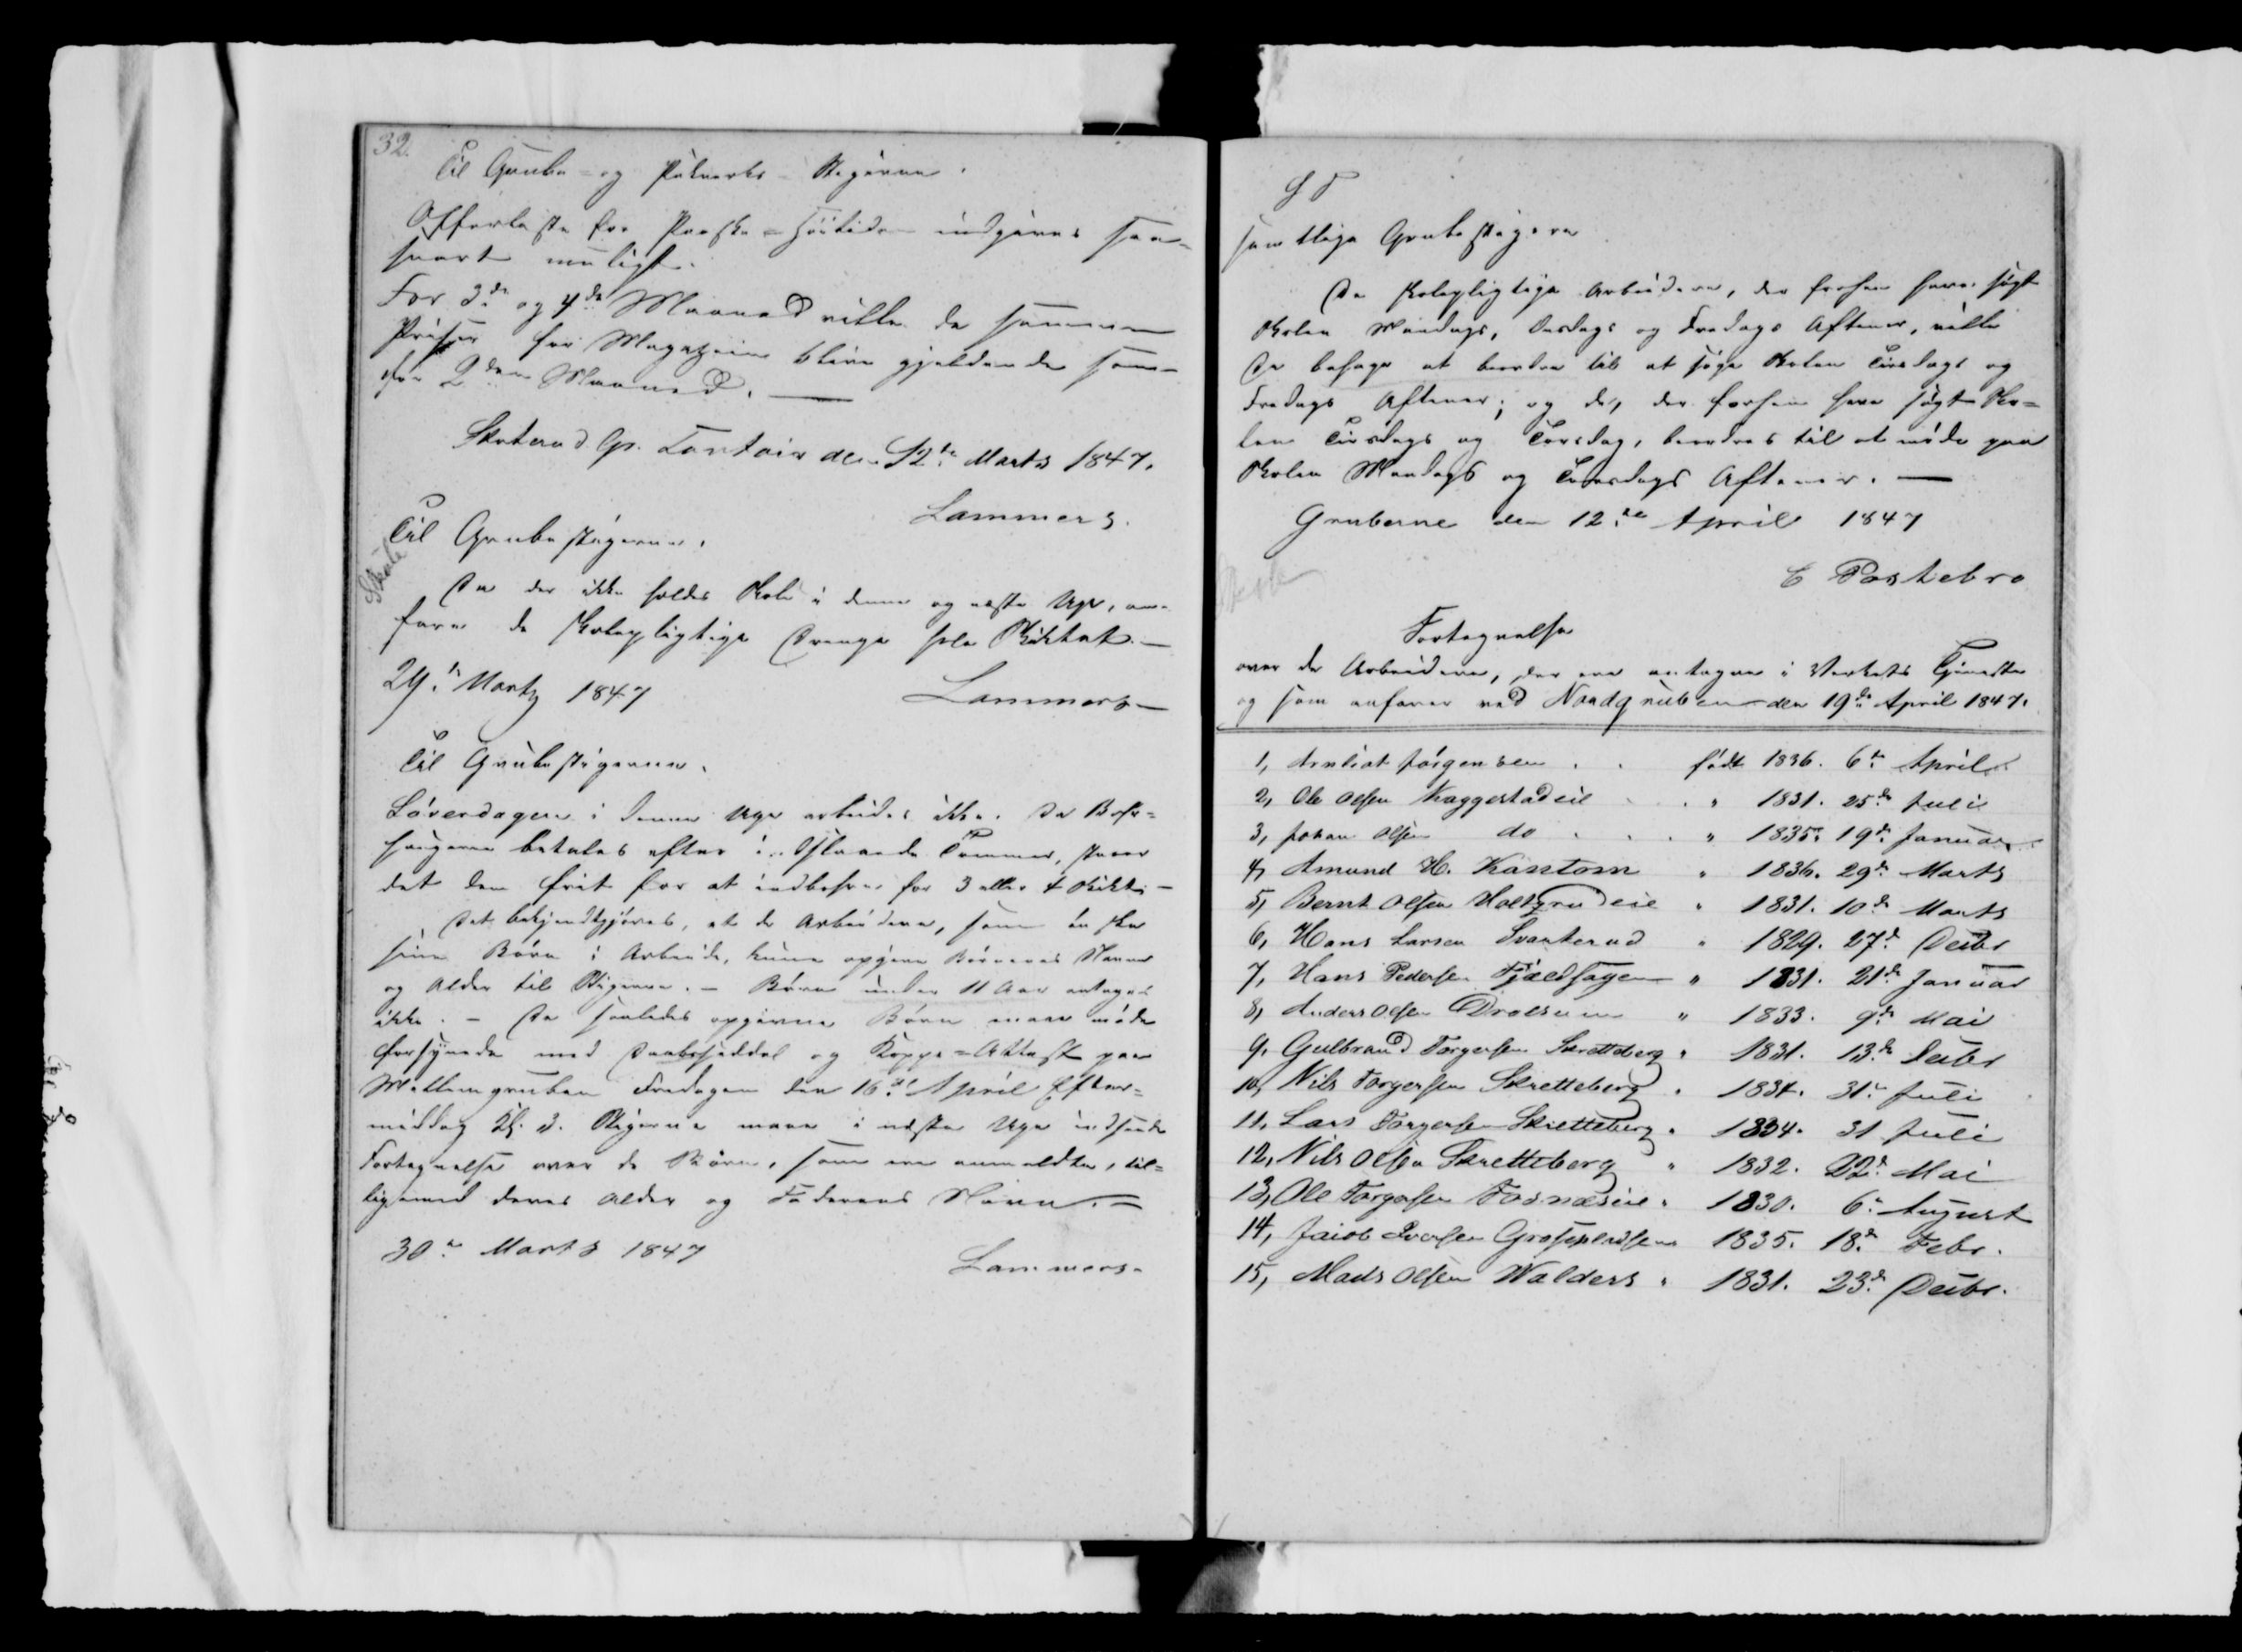 32.
Til Grube- og Pukverks-Stigerne.
Offerliste for Paaske-Höitiden indgives saa-
snart muligt.
For 3de og 4de Maaned ville de samme
Priser for Magazin blive gjeldende som
for 2den Maaned. —
Skuterud Gr. Contoir den 12te Marts 1847.
Lammers.
Til Grubestigerne.
Skole
Da der ikke holdes Skole i denne og næste Uge, an-
fare de skolepligtige Drenge hele Skiktet. —
29de Marts 1847
Lammers —
Til Grubestigerne.
Löverdagen i denne Uge arbeides ikke. De
betales efter Tommer, staaer
det dem frit for at for 3 eller 4 Skikt. —
Det bekjendtgjöres, at de Arbeidere, som önske
sine Börn i Arbeide, kunne opgive Börnenes Navne
og Alder til Stigerne. — Börn under 11 Aar antages
ikke. — De saaledes opgivne Börn maae möde
forsynede med Daabsseddel og Koppe-Attest paa
Mellemgruben Fredagen den 16de April Efter-
middag Kl. 3. Stigerne maae i næste Uge indsende
Fortegnelse over de Börn, som ere anmeldte, til-
ligemed deres Alder og Faderens Navn. —
30te Marts 1847
Lammers.
samtlige Grubestigere
De skolepligtige Arbeidere, der forhen have sögt
Skolen Mandags, Onsdags og Fredags Aftener, ville
De behage at beordre til at söge Skolen Tirsdags og
Fredags Aftener; og de, der forhen have sögt Sko-
len Tirsdags og Torsdag, beordres til at möde paa
Skolen Mandags og Torsdags Aftener. —
Gruberne den 12te April 1847
Skole
C Postebro
Fortegnelse
over de Arbeidere, der ere antagne i Verkets Tjeneste
og som anfarer ved Nordgruben den 19de April 1847.
1, Arnliot Jörgensen . . födt 1836. 6te April
2, Ole Olsen Kaggestadeie . . " 1831. 25de Juli
3, Johan Olsen do . . . " 1835. 19de Januar
4, Amund H. Käntom " 1836. 29de Marts
5, Bernt Olsen Holtzrudeie " 1831. 10de Marts
6, Hans Larsen Svarterud " 1829. 27d Decbr
7, Hans Pedersen Fjældhagen " 1831. 21de Januar
8, Anders Olsen Drolsum " 1833. 9de Mai
9, Gulbrand Torgersen Skretteberg " 1831. 13de Decbr
10, Nils Torgersen Skretteberg " 1834. 31te Juli
11, Lars Torgersen Skretteberg " 1834. 31 Juli
12, Nils Olsen Skretteberg " 1832. 22d Mai
13, Ole Torgersen Fosnæseie " 1830. 6te August
14, Jacob Iversen 1835. 18d Febr.
15, Mads Olsen Walders " 1831. 23d Decbr.